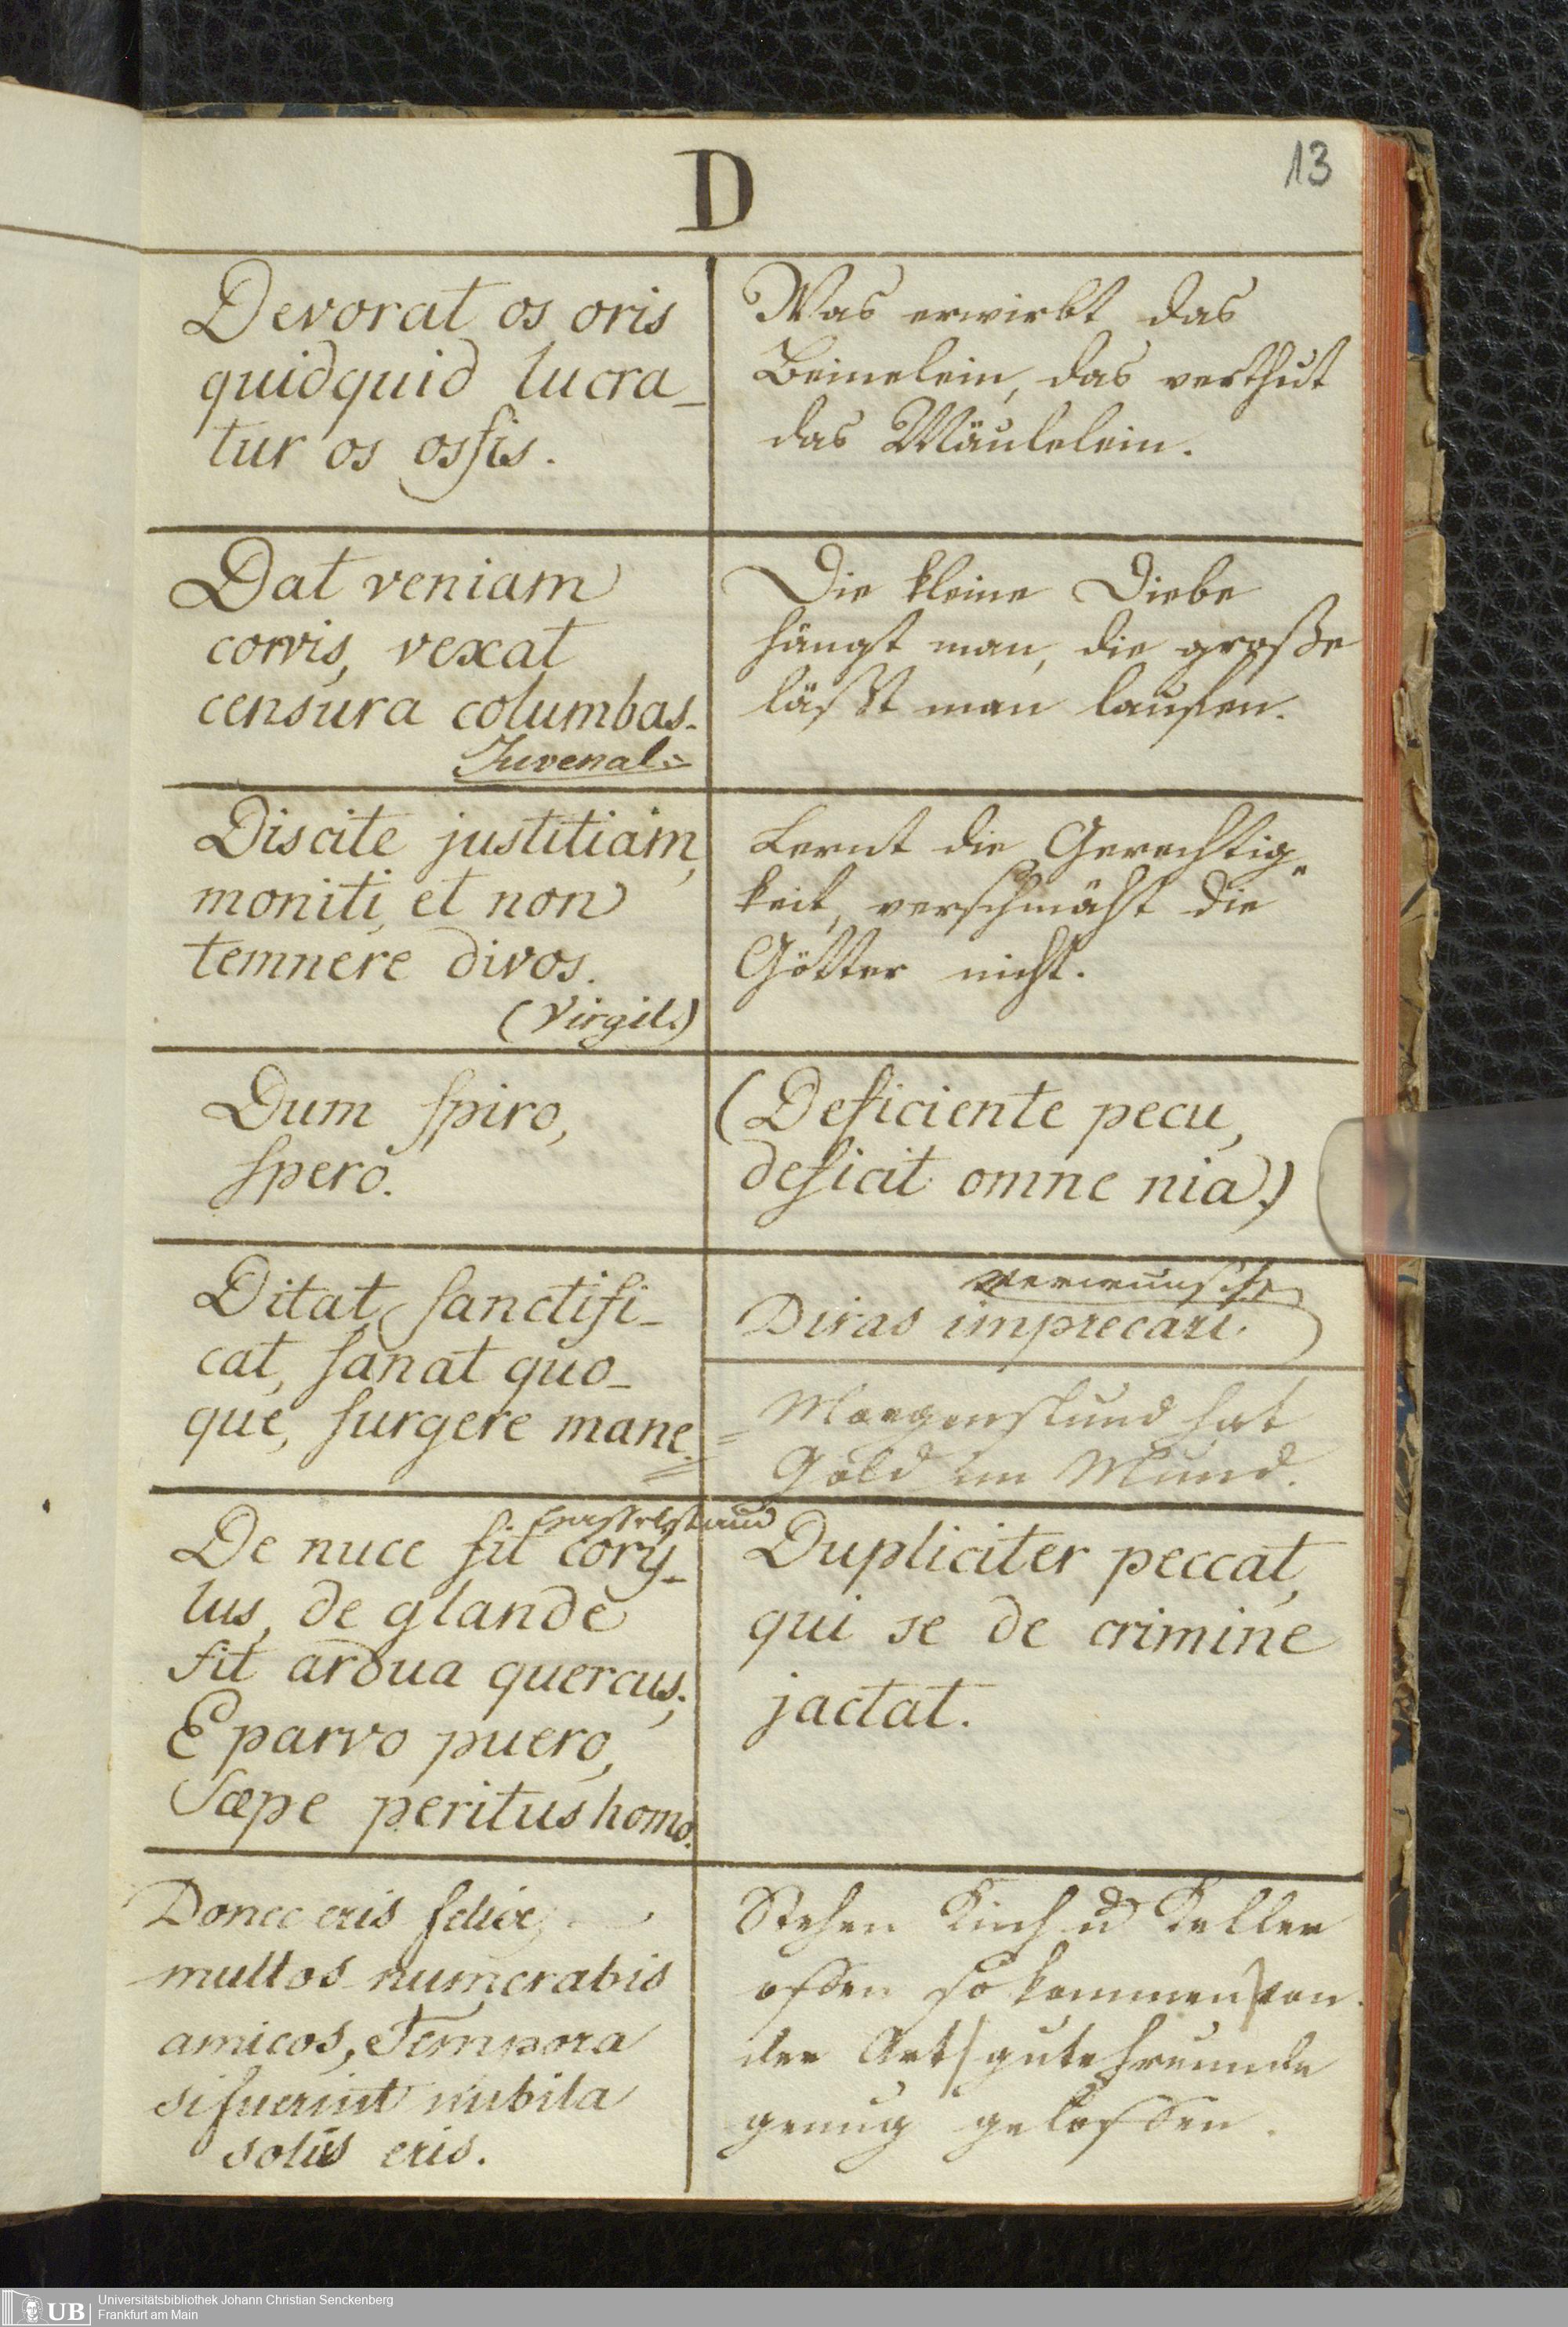 13
D
Devorat os oris
quidquid lucra-
tur os ossis.
Was erwirbt das
Beinelein, das verthut
das Mäulelein.
Dat veniam
corvis, vexat
censura columbas.
Juvenal.
Die kleine Diebe
hängt man, die große
läßt man laufen.
Discite justitiam,
moniti, et non
temnere divos.
(Virgil.)
Lernt die Gerechtig-
keit, verschmäht die
Götter nicht.
Dum spiro,
spero.
(Deficiente pecu,
deficit omne nia.)
Ditat, sanctifi-
cat, sanat quo-
que, surgere mane.
Diras imprecari.
Morgenstund hat
Gold im Mund.
De nuce fit cory-
lus, de glande
fit ardua quercus;
E parvo puero,
Sæpe peritus homo.
Dupliciter peccat,
qui se de crimine
jactat.
Donec eris felix,
multos numerabis
amicos, Tempora
si fuerint nubila
solus eris.
Stehen Küch u Keller
offen so kommen von
der Art gute Freunde
genug geloffen.
UB
Universitätsbibliothek Johann Christian Senckenberg
Frankfurt am Main